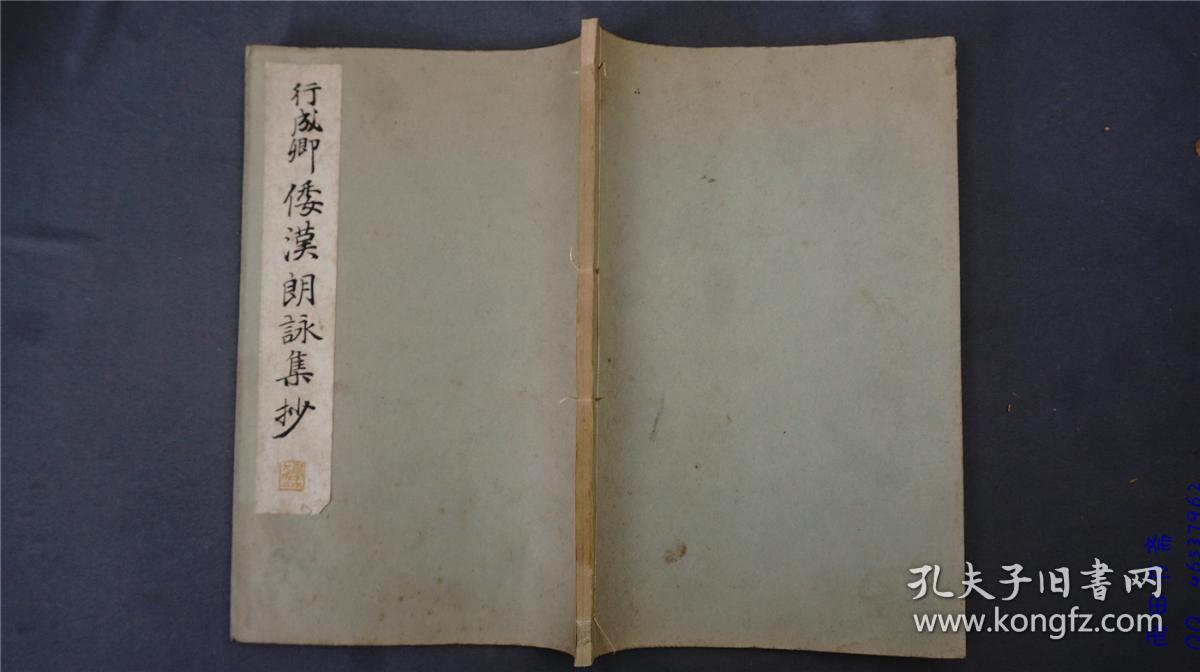 行成卿倭漢朗詠集抄
孔夫子旧書网
www.kongfz.com